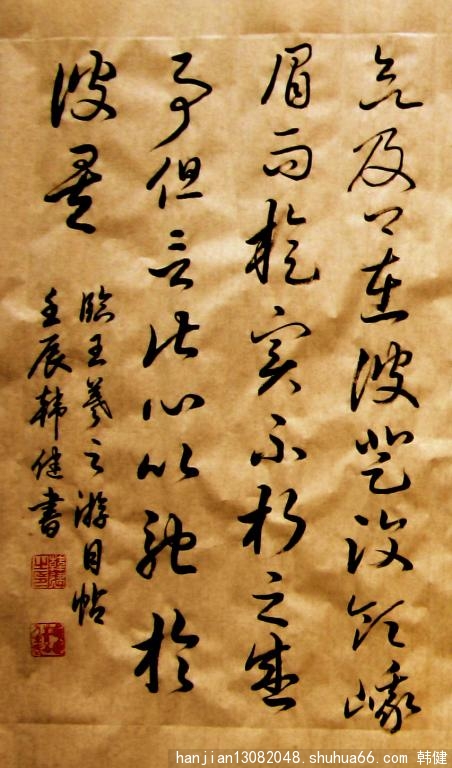 欲及卿在彼登汶领峨
眉而旋实不朽之盛
事但言此心以驰於
彼矣
临王羲之游目帖
壬辰韩健书
hanjian13082048.shuhua66.com 韩健